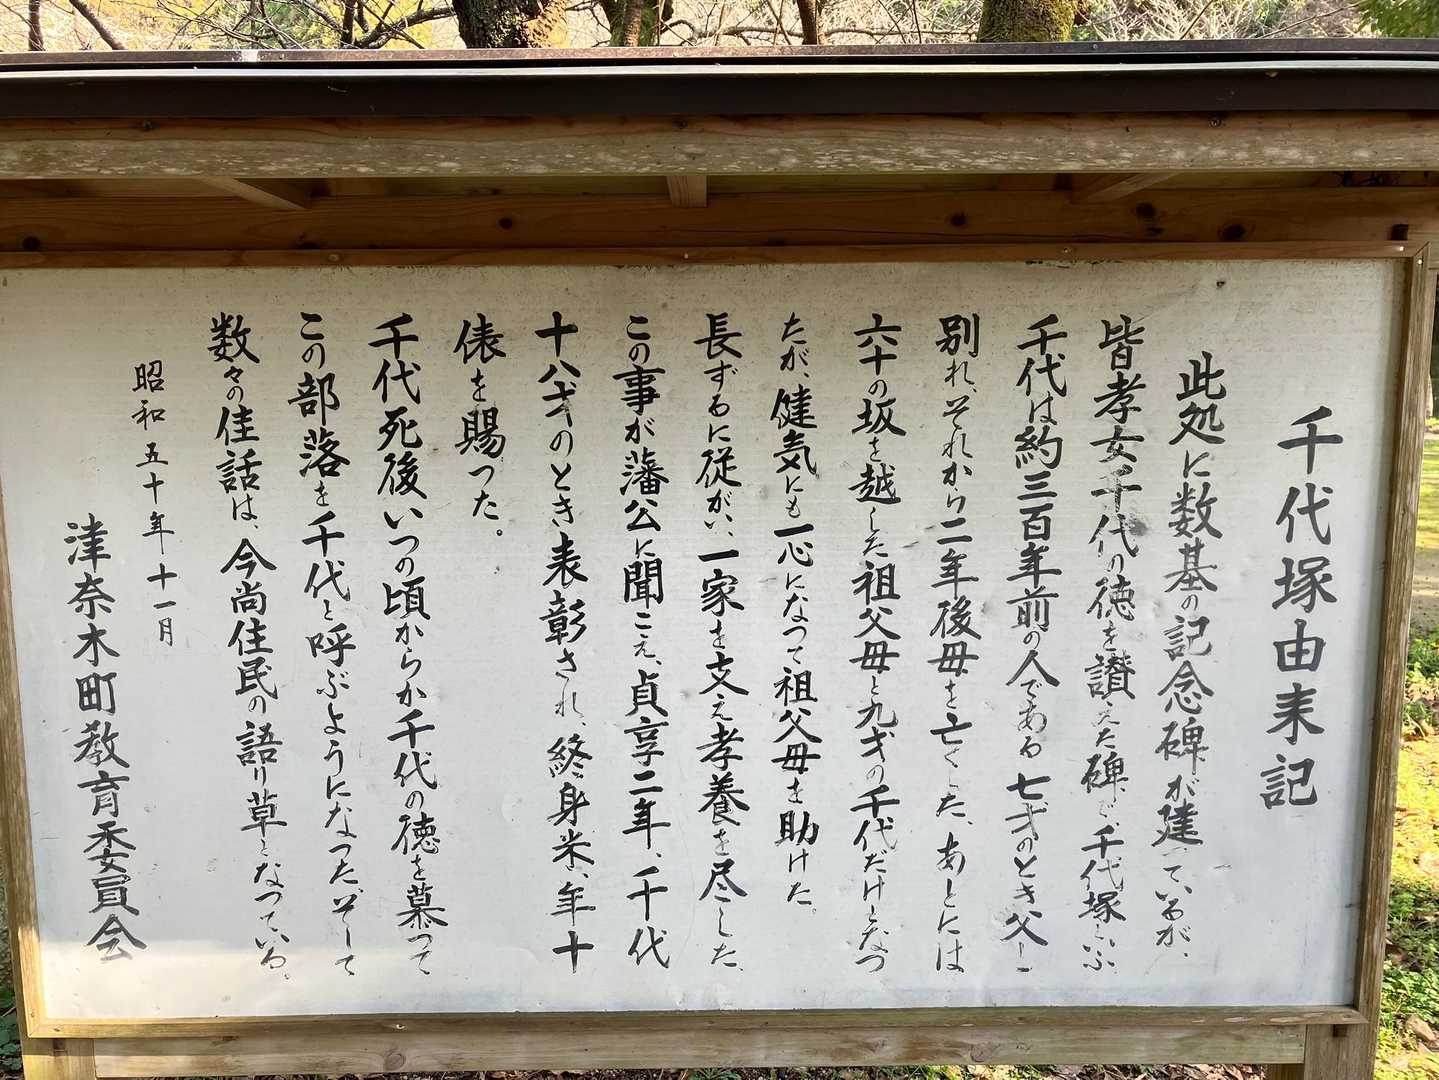 千代塚由来記
此処に数基の記念碑が建っているが、
皆孝女千代の徳を讃えた碑で、千代塚といふ
千代は約三百年前の人である七才のとき父に
別れ、それから二年後母を亡くした、あとには
六十の坂を越した祖父母と九才の千代だけとなつ
たが、健気にも一心になつて祖父母を助けた。
長ずるに従がい、一家を支え孝養を尽した、
この事が藩公に聞こえ、貞享二年、千代
十八才のとき表彰され、終身米、年十
俵を賜つた。
千代死後いつの頃からか千代の徳を慕つて
この部落を千代と呼ぶようになつた、そして
数々の佳話は、今尚住民の語り草となつている。
昭和五十年十一月
津奈木町教育委員会